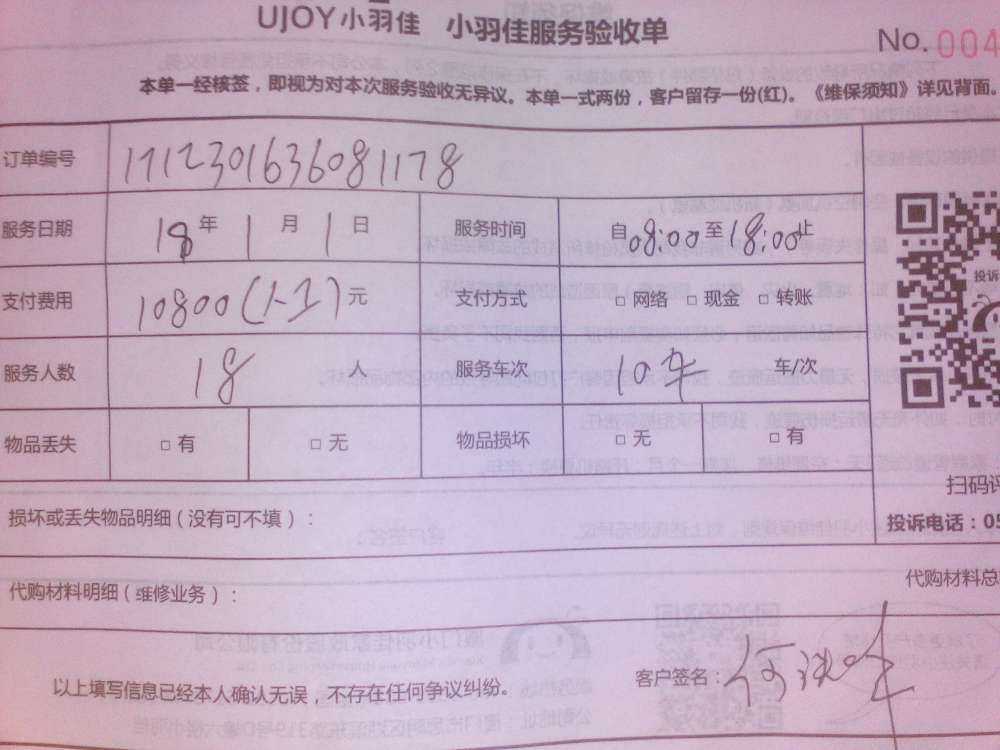 UJOY小羽佳 小羽佳服务验收单
No. 004
本单一经核签，即视为对本次服务验收无异议。本单一式两份，客户留存一份(红)。《维保须知》详见背面。
订单编号 171230163608​1178
服务日期 18年1月1日 服务时间 自08:00至18:00止
支付费用 10800(人工)元 支付方式 □网络 □现金 □转账
服务人数 18人 服务车次 10车 车/次
物品丢失 □有 □无 物品损坏 □无 □有
投诉
扫码评
损坏或丢失物品明细（没有可不填）：
投诉电话：05
代购材料明细（维修业务）：
代购材料总
以上填写信息已经本人确认无误，不存在任何争议纠纷。
客户签名：何